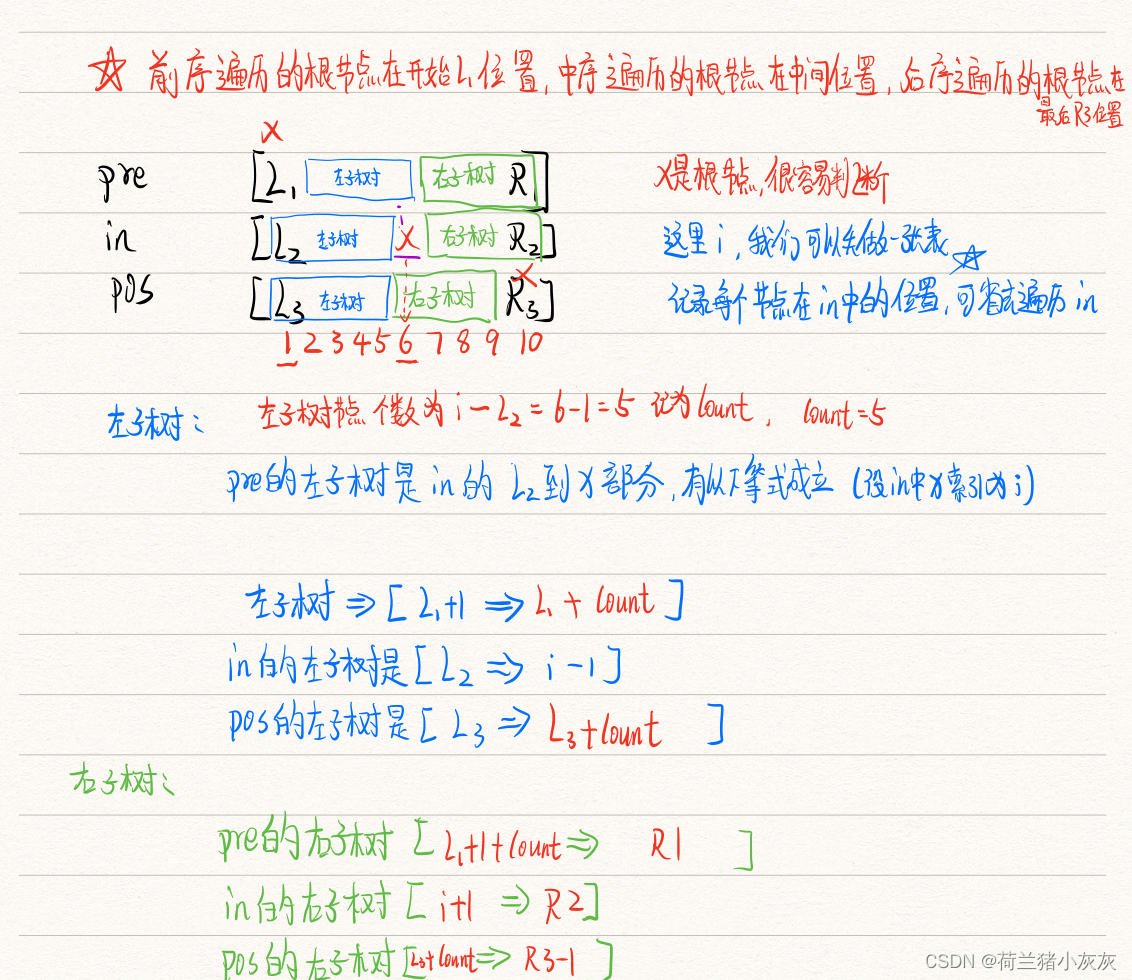 ☆ 前序遍历的根节点在开始L1位置,中序遍历的根节点在中间位置,后序遍历的根节点在
最后R3位置
X
pre [L1 左子树 右子树 R1] X是根节点,很容易判断
in [L2 左子树 X 右子树 R2] 这里i,我们可以先做一张表 ☆
pos [L3 左子树 右子树 R3] X 记录每个节点在in中的位置,可省去遍历in
1 2 3 4 5 6 7 8 9 10
左子树: 左子树节点个数为 i-L2=6-1=5 记为 Count, Count=5
pre的左子树是in的L2到X部分,有以下等式成立(设in中X索引为i)
左子树 ⇒ [L1+1 ⇒ L1+Count]
in的左子树是[L2 ⇒ i-1]
pos的左子树是[L3 ⇒ L3+Count]
右子树:
pre的右子树[L1+1+Count ⇒ R1]
in的右子树[i+1 ⇒ R2]
pos的右子树[L3+Count ⇒ R3-1]
CSDN @荷兰猪小灰灰